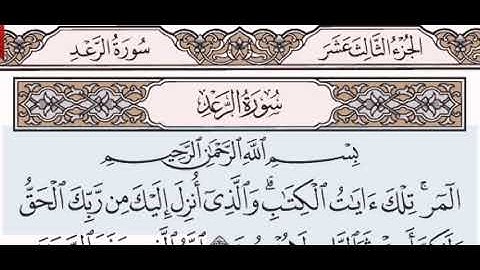 الجُزْءُ الثَّالِثَ عَشَرَ سُورَةُ الرَّعْدِ
سُورَةُ الرَّعْدِ
بِسْمِ ٱللَّهِ ٱلرَّحْمَٰنِ ٱلرَّحِيمِ
الٓمٓر ۚ تِلْكَ ءَايَٰتُ ٱلْكِتَٰبِ ۗ وَٱلَّذِىٓ أُنزِلَ إِلَيْكَ مِن رَّبِّكَ ٱلْحَقُّ